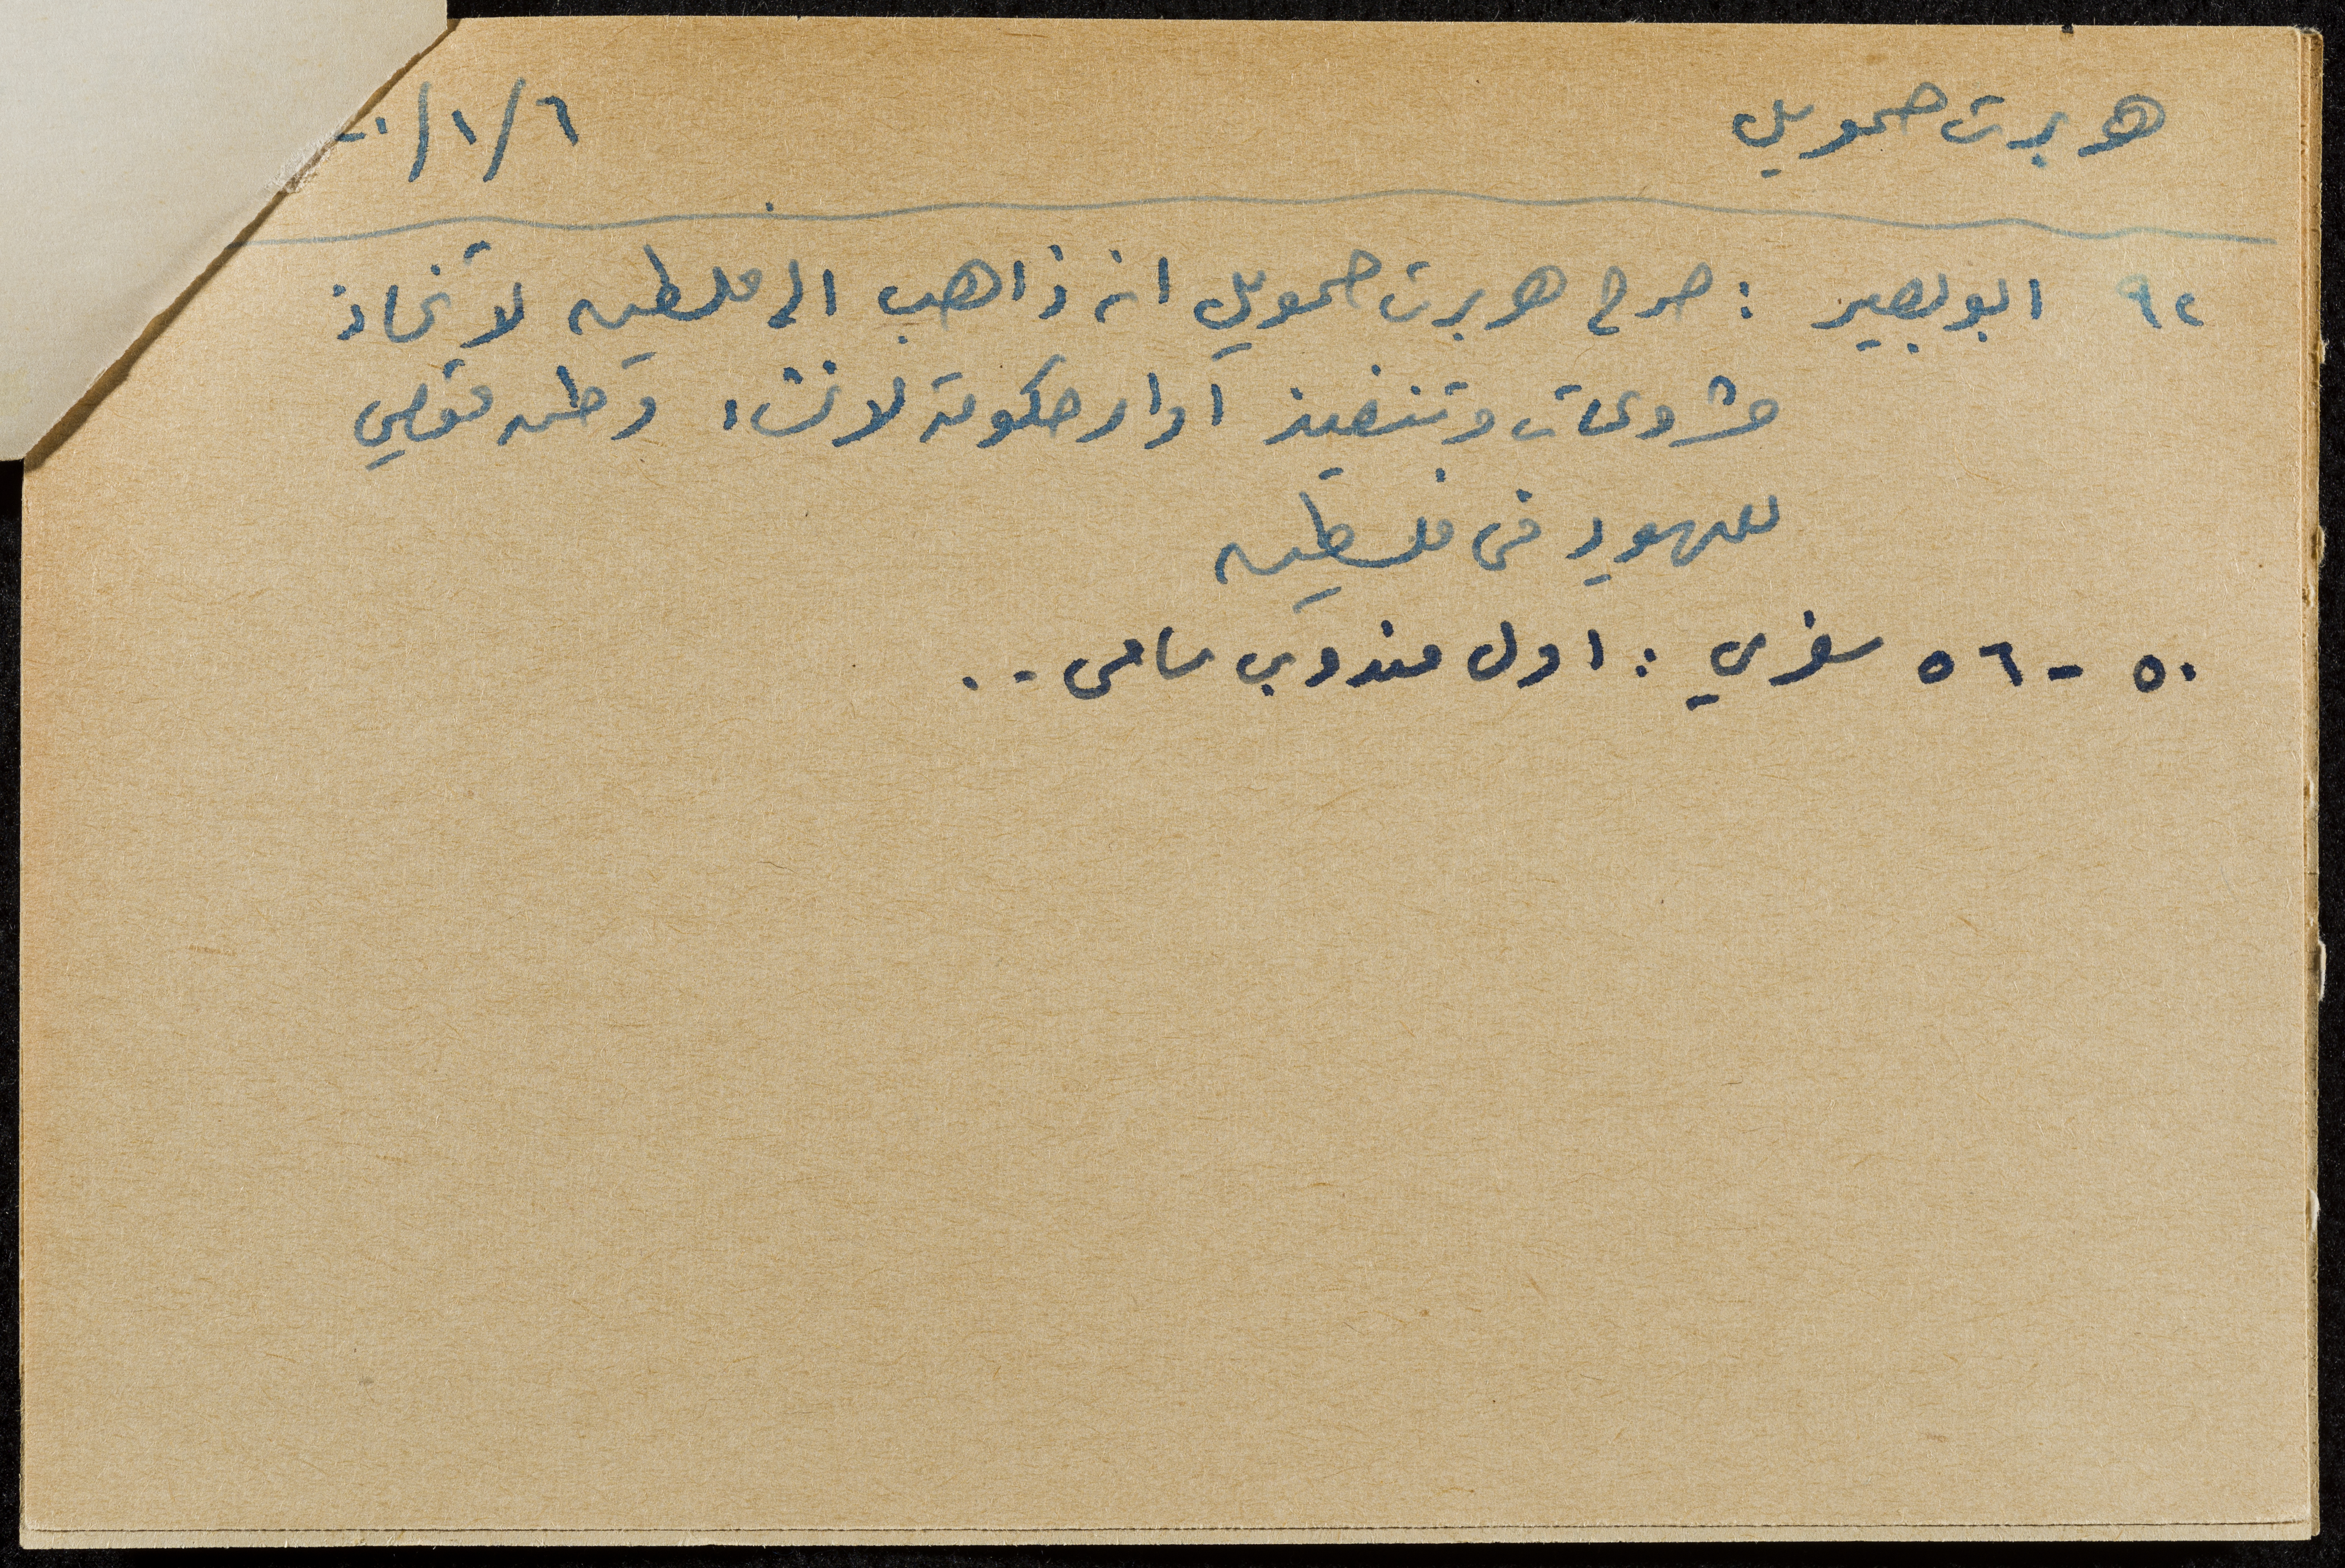 هربرت صموييل ٦/١/
٩٢ ابو بصير : صرح هربرت صموييل انه ذاهب الى فلسطين لاتخاذ
مشروعات وتنفيذ اوامر حكومة لانشاء وطن قومي
لليهود في فلسطين
٥٠ - ٥٦ سفري : اول مندوب سامي ..